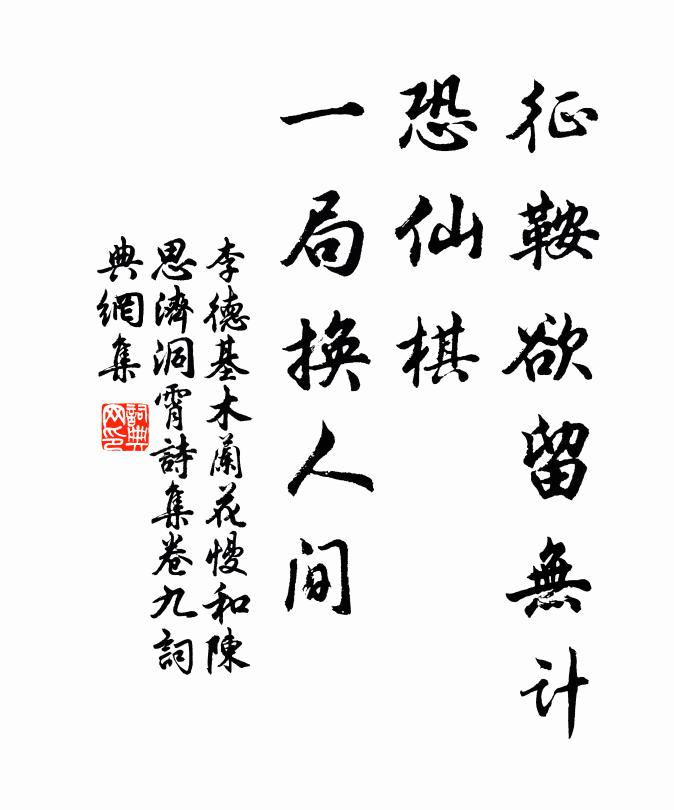 征鞍欲留無计
恐仙棋
一局換人间
李德基木蘭花慢和陳
思濟洞霄詩集卷九詞
典網集
詞典网印